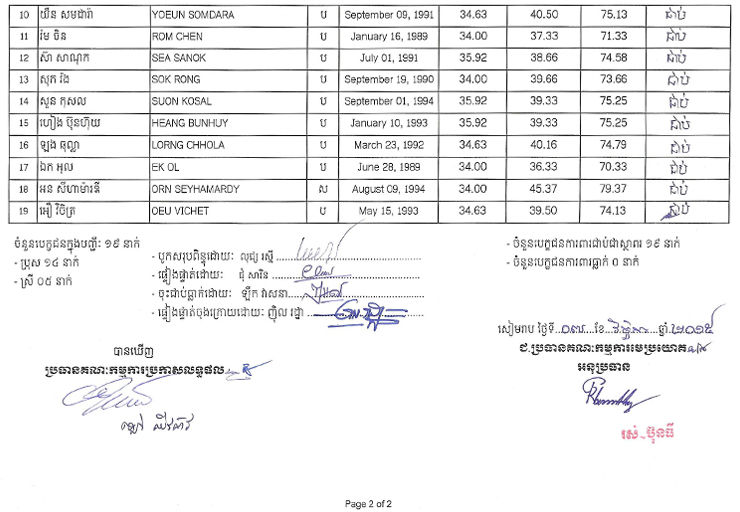 10 យឺន សមដារ៉ា YOEUN SOMDARA ប September 09, 1991 34.63 40.50 75.13 ជាប់
11 រ៉ែម ចិន ROM CHEN ប January 16, 1989 34.00 37.33 71.33 ជាប់
12 ស៊ា សាណុក SEA SANOK ប July 01, 1991 35.92 38.66 74.58 ជាប់
13 សុក រ៉ង SOK RONG ប September 19, 1990 34.00 39.66 73.66 ជាប់
14 សួន កុសល SUON KOSAL ប September 01, 1994 35.92 39.33 75.25 ជាប់
15 ហៀង ប៊ុនហ៊ុយ HEANG BUNHUY ប January 10, 1993 35.92 39.33 75.25 ជាប់
16 ឡុង ឆុល្លា LORNG CHHOLA ប March 23, 1992 34.63 40.16 74.79 ជាប់
17 ឯក អុល EK OL ប June 28, 1989 34.00 36.33 70.33 ជាប់
18 អន សីហាម៉ារឌី ORN SEYHAMARDY ស August 09, 1994 34.00 45.37 79.37 ជាប់
19 អឿ វិចិត្រ OEU VICHET ប May 15, 1993 34.63 39.50 74.13 ជាប់
ចំនួនបេក្ខជនក្នុងបញ្ជី: ១៩ នាក់
- ប្រុស ១៤ នាក់
- ស្រី ០៥ នាក់
- បូកសរុបពិន្ទុដោយ: លុជ្ស រស្មី
- ផ្ទៀងផ្ទាត់ដោយ: ជុំ សារិន
- ចុះជាប់ធ្លាក់ដោយ: ឡឹក វាសនា
- ផ្ទៀងផ្ទាត់ចុងក្រោយដោយ: ញ៉ិល រដ្ឋា
- ចំនួនបេក្ខជនការពារជាប់ជាស្ថាពរ ១៩ នាក់
- ចំនួនបេក្ខជនការពារធ្លាក់ ០ នាក់
សៀមរាប ថ្ងៃទី ០៣ ខែ វិច្ឆិកា ឆ្នាំ ២០១៥
ជ.ប្រធានគណៈកម្មការមេប្រយោគ
អនុប្រធាន
រស់ ប៊ុនធី
បានឃើញ
ប្រធានគណៈកម្មការប្រកាសលទ្ធផល
Page 2 of 2